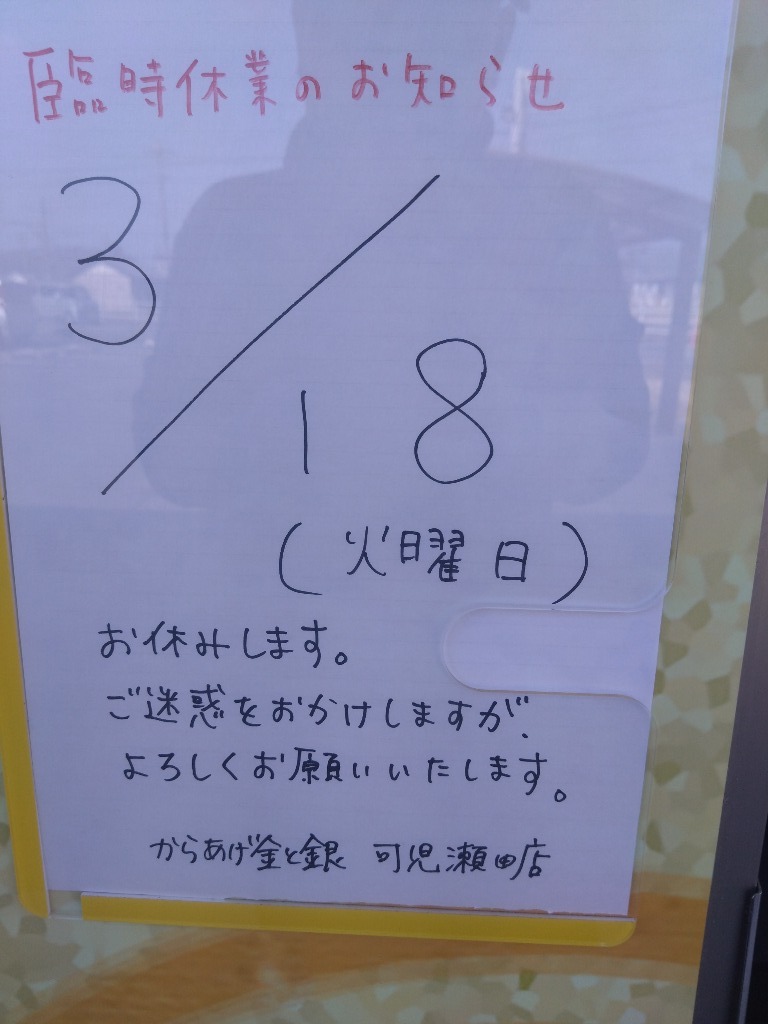 臨時休業のお知らせ
3/18
(火曜日)
お休みします。
ご迷惑をおかけしますが、
よろしくお願いいたします。
からあげ金と銀 可児瀬田店